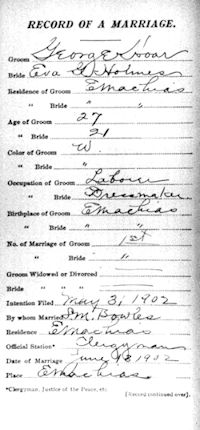 RECORD OF A MARRIAGE.
Groom George Hoar
Bride Eva G. Holmes
Residence of Groom E Machias
" Bride " "
Age of Groom 27
" Bride 21
Color of Groom W.
" Bride "
Occupation of Groom Laborer
" Bride Dressmaker
Birthplace of Groom E Machias
" Bride " "
No. of Marriage of Groom 1st
" Bride "
Groom Widowed or Divorced
Bride " "
Intention Filed May 3, 1902
By whom Married S.M. Bowles
Residence E Machias
Official Station* Clergyman
Date of Marriage June 1902
Place E Machias
*Clergyman, Justice of the Peace, etc. [Record continued over].